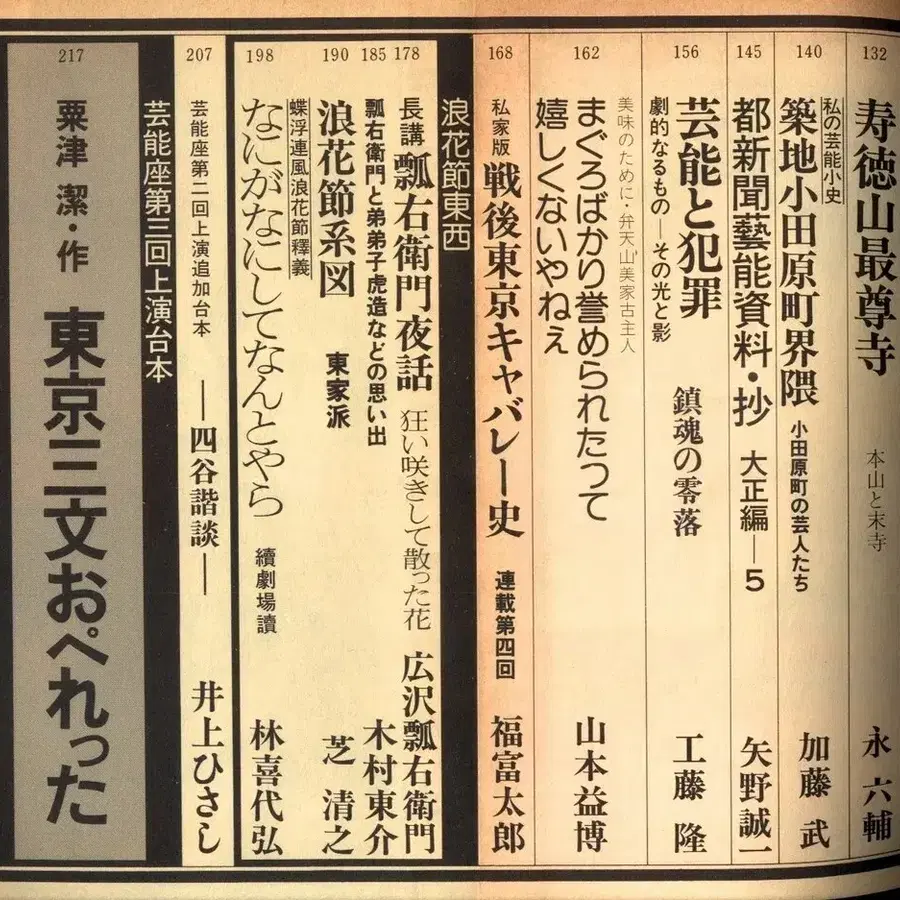 132
寿徳山最尊寺 本山と末寺 永六輔
140
私の芸能小史
築地小田原町界隈 小田原町の芸人たち 加藤 武
145
都新聞藝能資料・抄 大正編—5 矢野誠一
156
芸能と犯罪 鎮魂の零落 工藤 隆
劇的なるもの—その光と影
162
美味のために・弁天山美家古主人
まぐろばかり誉められたって
嬉しくないやねえ 山本益博
168
私家版 戦後東京キャバレー史 連載第四回 福富太郎
浪花節東西
178
長講 瓢右衛門夜話 狂い咲きして散った花 広沢瓢右衛門
185
瓢右衛門と弟弟子虎造などの思い出 木村東介
190
浪花節系図 東家派 芝 清之
198
蝶浮連風浪花節釋義
なにがなにしてなんとやら 續劇場讀 林喜代弘
207
芸能座第二回上演追加台本 —四谷諧談— 井上ひさし
芸能座第三回上演台本
217
粟津 潔・作 東京三文おぺれった